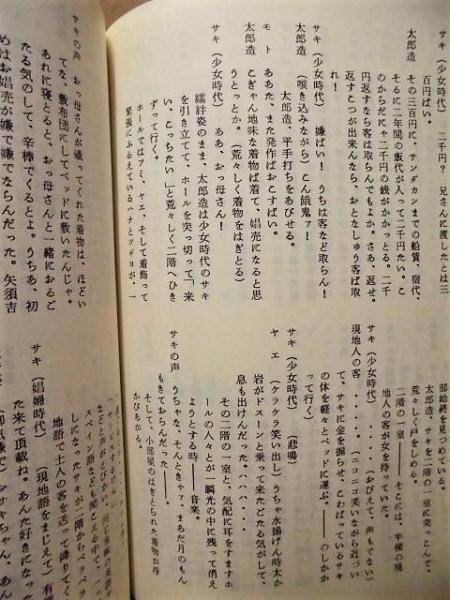 サキ（少女時代）　二千円？　兄さんに渡したとは三
百円ばい。
太郎造　その三百円に、サンダカンまでの船賃、宿代、
そるに二年間の飯代が入って二千円たい。こ
のからだにゃ二千円の銭がかかっとる。二千
円返すなら客は取らんでもよか。さあ、返せ。
返すこつが出来んなら、おとなしゅう客ば取
れ！
サキ（少女時代）　嫌ばい！　うちは客など取らん！
太郎造　（咳き込みながら）こん餓鬼ァ！
太郎造、平手打ちをあびせる。
サキ（少女時代）　ああ、おっ母さん！
モト　ああた、また発作ばおこすばい。
こぎゃん地味な着物ば着て、娼売になると思
うとっとか。（荒々しく着物をはぎとる）
襦袢姿のまま、太郎造は少女時代のサキ
を引き立てて、ホールを突っ切って「来
い、こっちたい」と荒々しく二階へひき
ずって行く。
ホールではフミ、ヤエ、そして着飾って
緊張にふるえているハナとツギヨが、一
部始終を見つめている。
太郎造、サキを二階の一室に突っこんで、
荒々しく戸をしめる。
二階の一室――そこには、半裸の現
地人の客が女を待っていた。
サキ（少女時代）　……（おびえて、声もでない）
現地人の客　……（ニコニコ笑いながら近づい
て、サキに金を握らせ、こわばっているサキ
の体を軽々とベッドに運ぶ。――のしかか
って行く）
サキ（少女時代）　（悲鳴）
ヤエ　（ケラケラ笑い出し）うちゃ水揚げん時太か
岩がドスーンと乗って来たごたる気がして、
息も出けんだった。ハハハ・・・
その二階の一室と、気配に耳をすますホ
ールの人々とが一瞬光の中に残って消え
ようとする時――音楽。
サキの声　うちゃな、そんときゃァ、まあだ月のもん
もきておらんだった――
そして、小部屋のはぎとられた着物が浮
かびあがる。
サキの声　おっ母さんが織ってくれた着物は、ほどい
てな、敷布団にしてベッドに敷いたんじゃ。
あれに寝とると、おっ母さんと一緒におるご
たる気のして、辛棒でくるとよ。うちあ、初
めはお娼売が嫌で嫌でならんだった。矢須吉
スペイン語なども聞こえる中で、
しになったサキが二階からペラペラ
地語で土人の客を送って降りてく
サキ（娼婦時代）　（現地語をまじえて）有
た来て頂戴ね。あんた好きになった
サキちゃん、あん